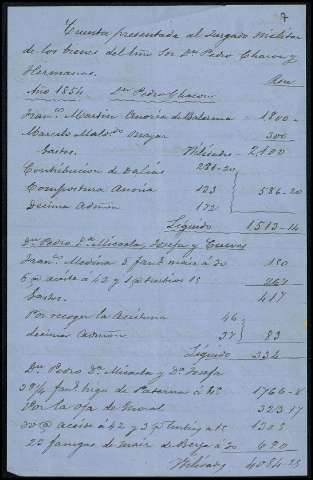 7
Cuenta presentada al Juzgado Militar
de los bienes del Ilmo Sor Dn Pedro Chacon y
Hermanas.
Rvn
Año 1854 Dn Pedro Chacon
Franco Martin Anoria de Balerma 1800-
Marcelo Maldo 300
Gastos. 2100
Contribucion de Dalias 286-20
Compostura Anoria 123 586-20
Decima Admon 172
Líquido 1513-14
Dn Pedro Da Micaela, Josefa y Cuevas
Franco Medina 5 fans maiz á 30 150
6 @ aceite á 42 y 1 @ turbios 15 267
Gastos. 417
Por recoger la Aceituna 46
decima Admon 37 83
Líquido 334
Dn Pedro Da Micaela y Da Josefa
fans trigo de Paterna á 1766-8
Por la oja de Moral 323-17
30 @ aceite á 42 y 3 @ turbios á 15 1305
23 fanegas de maiz de Berja á 30 690
4084-25